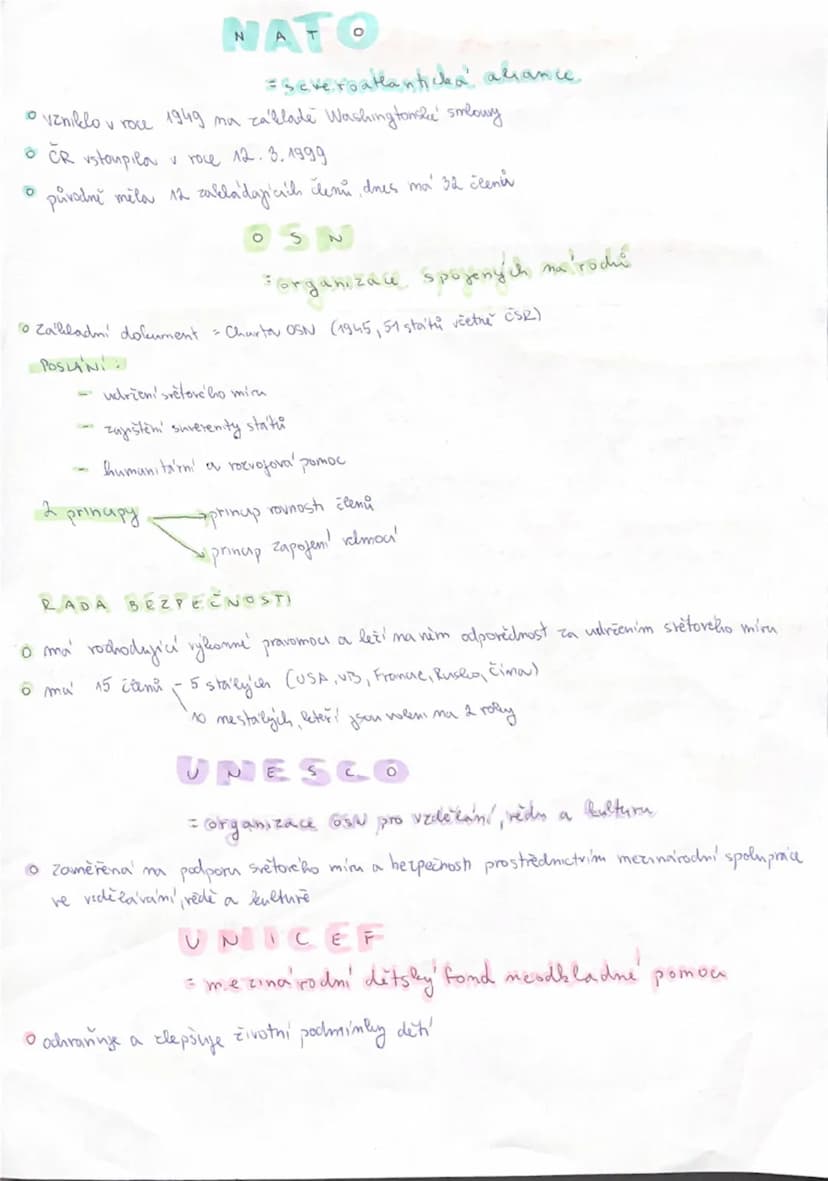 NATO
= severoatlantická aliance
vzniklo v roce 1949 na základě Washingtonské smlouvy
ČR vstoupila v roce 12. 3. 1999
původně měla 12 zakládajících členů, dnes má 32 členů
OSN
= organizace spojených národů
Základní dokument = Charta OSN (1945, 51 států včetně ČSR)
POSLÁNÍ:
- udržení světového míru
- zajištění suverenity států
- humanitární a rozvojová pomoc
2 principy
princip rovnosti členů
princip zapojení velmocí
RADA BEZPEČNOSTI
má rozhodující výkonné pravomoci a leží na něm odpovědnost za udržením světového míru
má 15 členů - 5 stálých (USA, VB, Francie, Rusko, Čína)
10 nestálých, kteří jsou voleni na 2 roky
UNESCO
= organizace OSN pro vzdělání, vědu a kulturu
zaměřená na podporu světového míru a bezpečnosti prostřednictvím mezinárodní spolupráce
ve vzdělávání, vědě a kultuře
UNICEF
= mezinárodní dětský fond neodkladné pomoci
ochraňuje a zlepšuje životní podmínky dětí